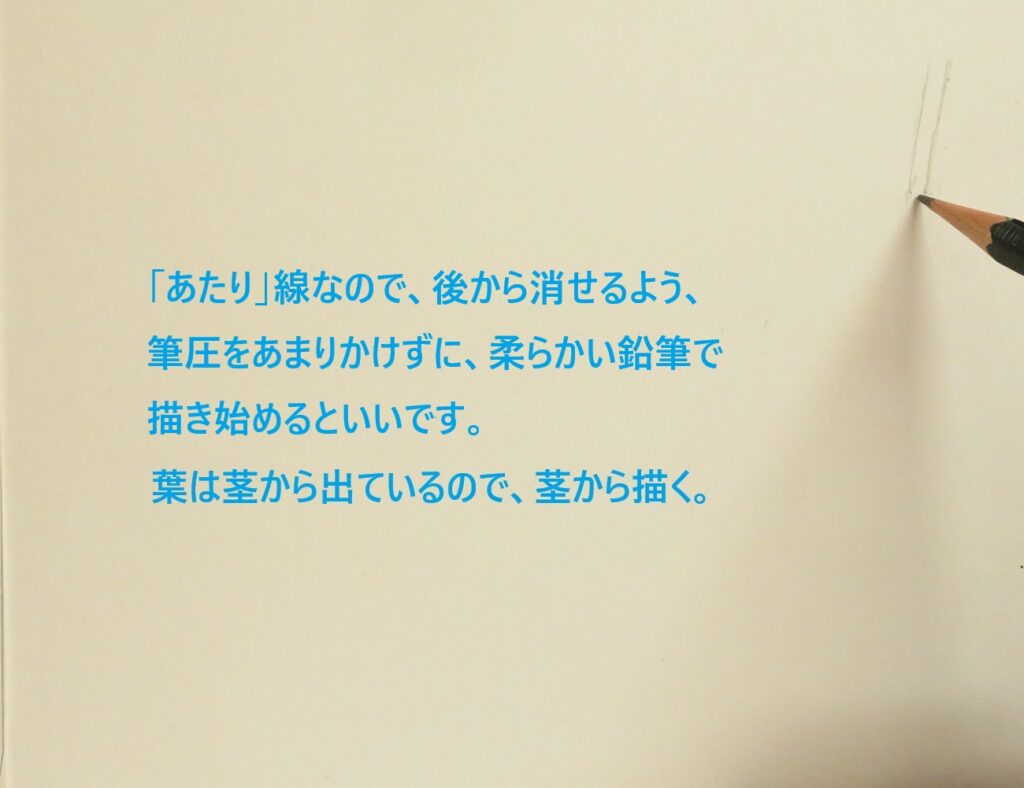 「あたり」線なので、後から消せるよう、
筆圧をあまりかけずに、柔らかい鉛筆で
描き始めるといいです。
葉は茎から出ているので、茎から描く。